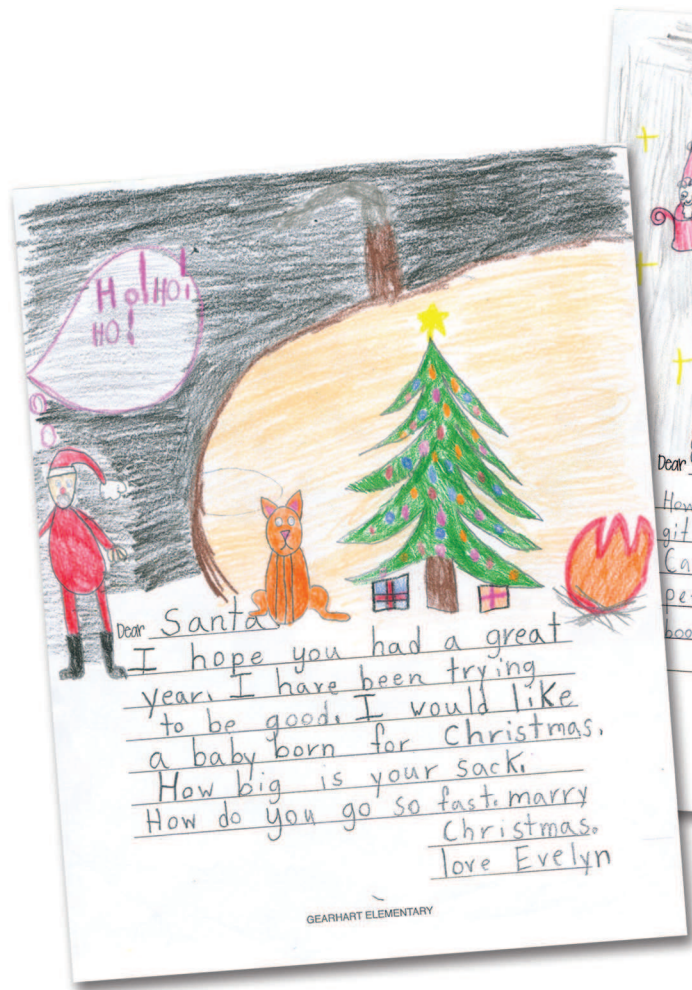 Ho! HO!
HO!
Dear Santa
I hope you had a great
year. I have been trying
to be good. I would like
a baby born for Christmas.
How big is your sack.
How do you go so fast. marry
Christmas.
love Evelyn
GEARHART ELEMENTARY
Dear
How
git
Ca
pe
boo